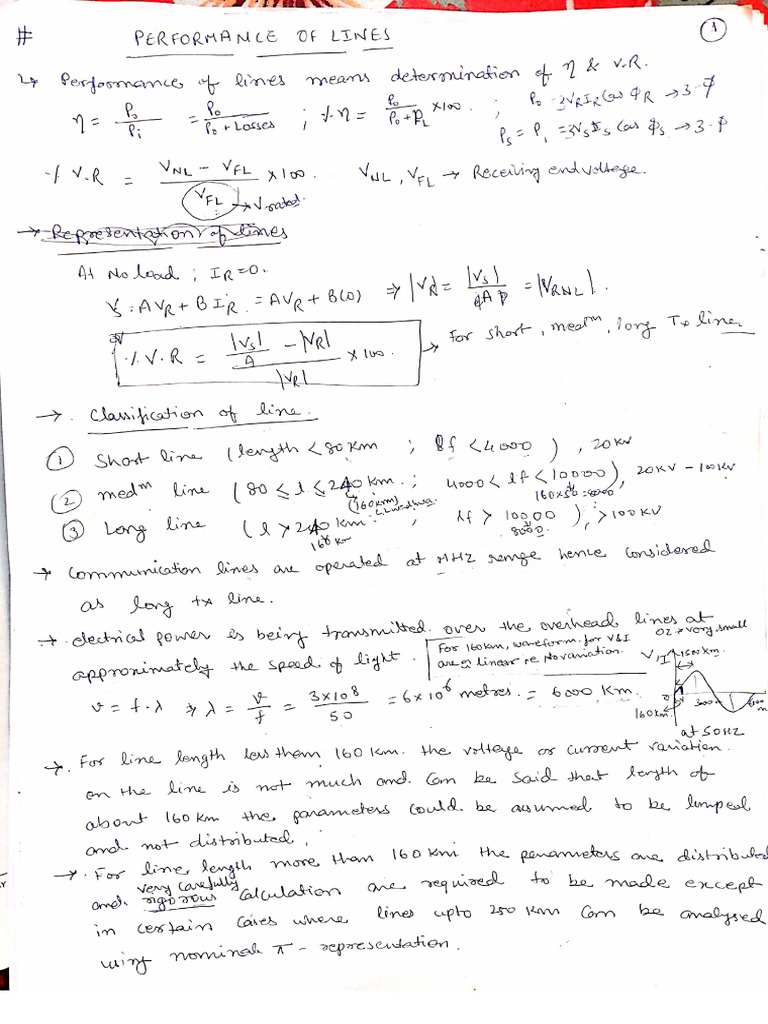 # PERFORMANCE OF LINES 1
↳ Performance of lines means determination of η & V.R.
η = Po/Pi = Po/(Po + Losses) ; % η = Po/(Po + PL) × 100 . ; Po = 3VR IR Cos φR → 3-φ
Ps = Pi = 3Vs Is Cos φs → 3-φ
% V.R = (VNL – VFL)/VFL × 100. VNL, VFL → Receiving end voltage.
→ V rated.
→ Representation of lines
At No load ; IR = 0.
Vs = AVR + B IR = AVR + B(0) ⇒ |VR| = |Vs|/|A| = |VRNL| .
% V.R = (|Vs|/A – |VR|)/|VR| × 100. → For short, medm, long Tx line.
→. Classification of line.
① Short line (length < 80 km ; lf < 4000 ) , 20 KV
② medm line (80 ≤ l ≤ 240 km. ; 4000 < lf < 10000), 20KV – 100KV
(160km) 160×50 = 8000
③ Long line (l > 240 km. ; lf > 10000 ) , > 100 KV
160 km 8000
→ Communication lines are operated at MHZ range hence considered
as long tx line.
→. electrical power is being transmitted over the overhead lines at
approximately the speed of light.
For 160km, waveform for V&I
are linear ie No variation.
very small
V, I 1500 km.
160km. 3000 6000
at 50HZ
v = f·λ ⇒ λ = v/f = 3×10⁸/50 = 6×10⁶ metres. = 6000 Km.
→. For line length less them 160 km. the voltage or current variation.
on the line is not much and. Can be said that length of
about 160 km the parameters could be assumed to be lumped
and not distributed.
→. For line length more than 160 km the parameters are distributed
very carefully
and. rigorous Calculation are required to be made except
in certain Cases where lines upto 250 km Can be analysed
using nominal π - representation.